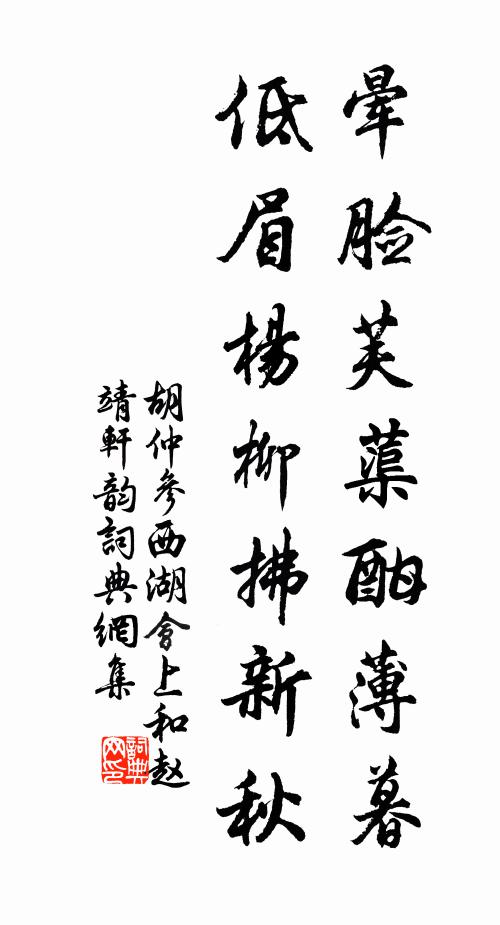 暈脸芙蕖酣薄暮
低眉楊柳拂新秋
胡仲參西湖會上和赵
靖軒韵詞典網集
詞典
网印